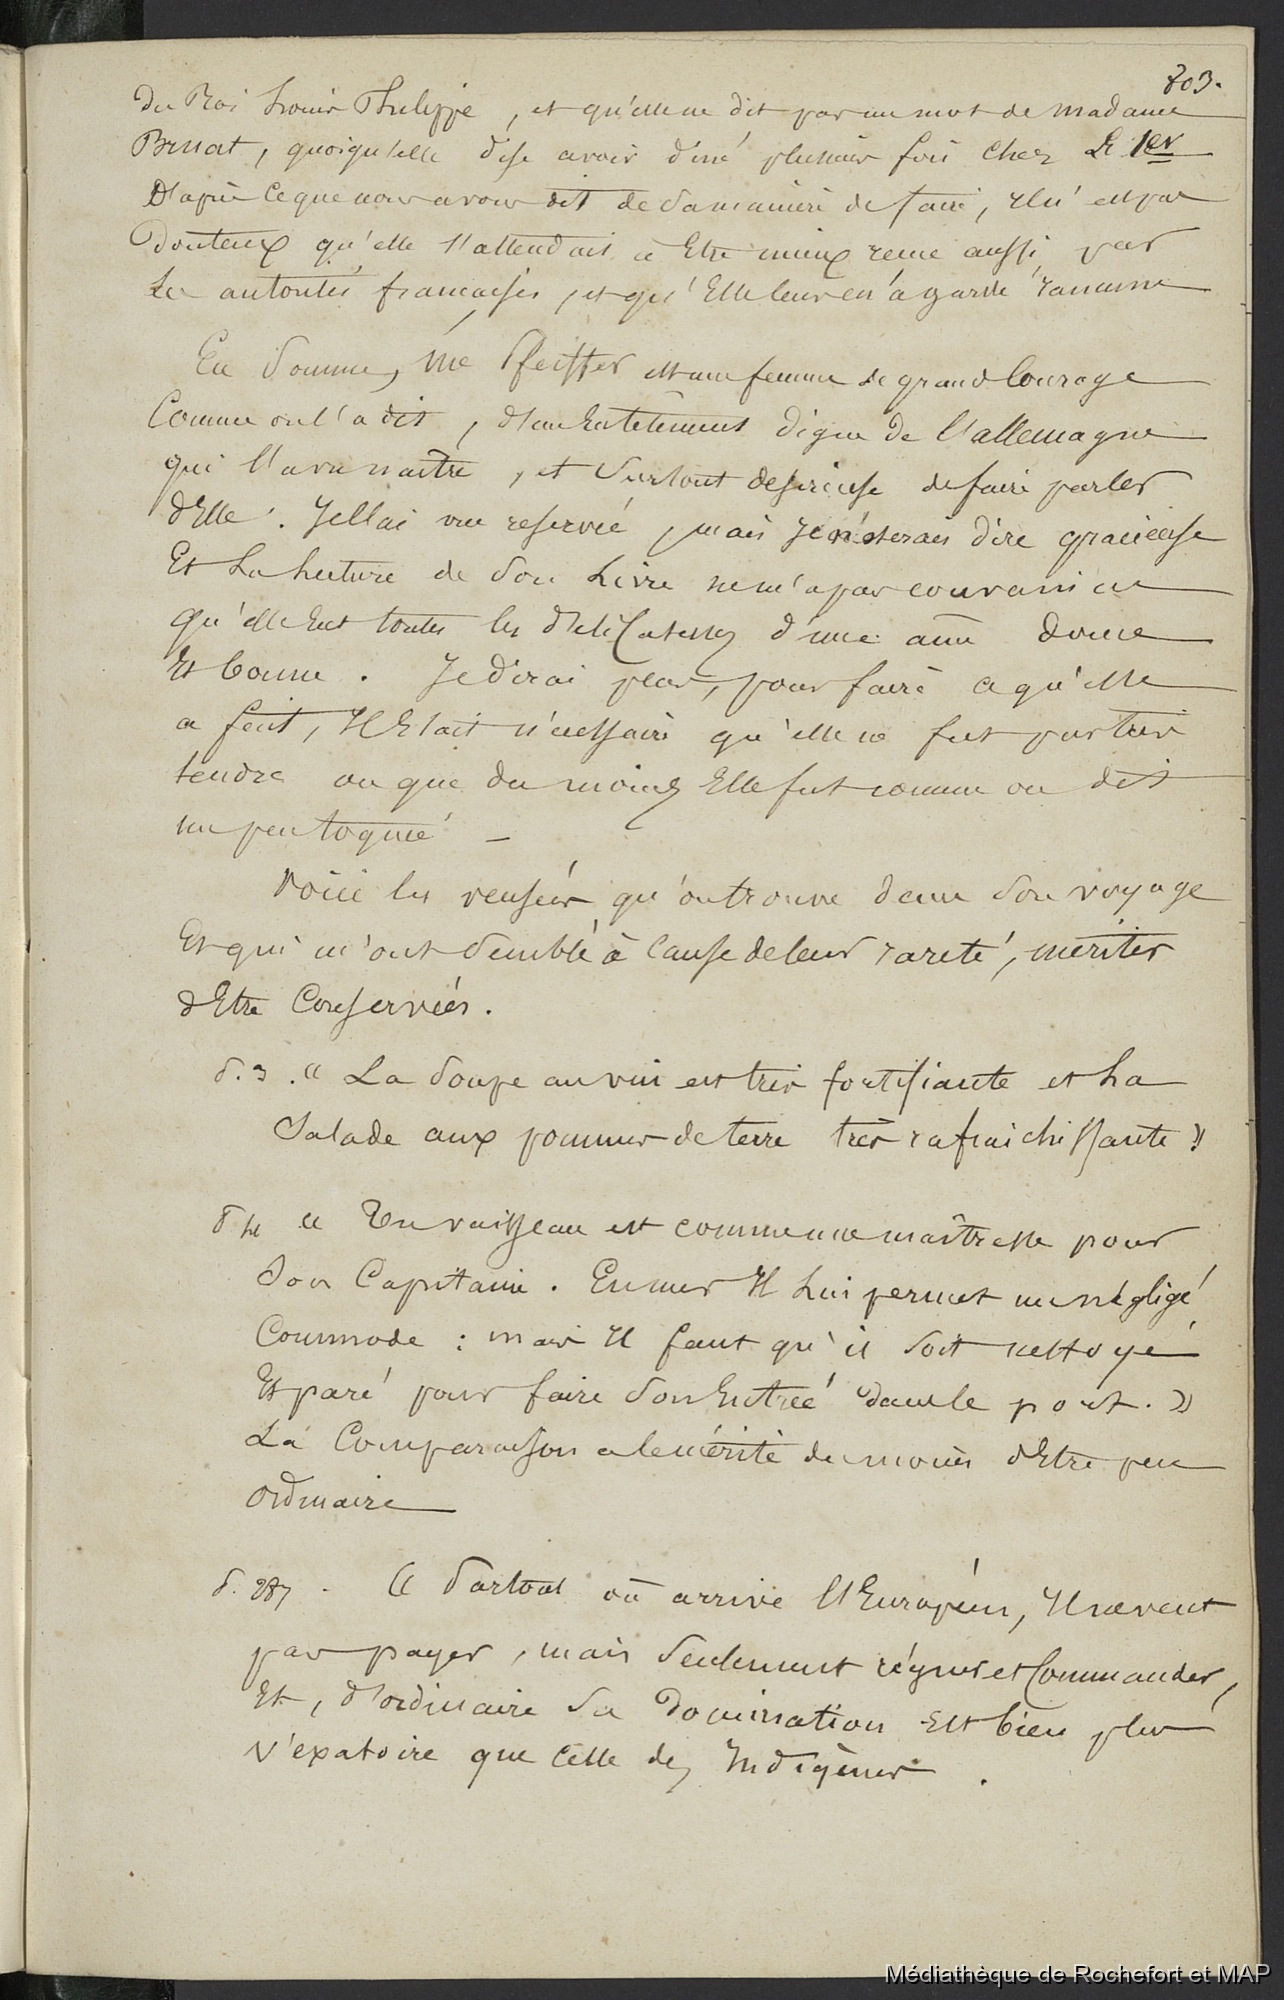 803.
du Roi Louis Philippe, et qu'elle ne dit pas un mot de madame
Bruat, quoiqu'elle dise avoir diné plusieurs fois chez Le 1er
D'après ce que nous avons dit de sa manière de faire, il n'est pas
Douteux qu'elle s'attendait à Etre mieux recue aussi par
Les autorités francaises, et qu'Elle leur en a gardé rancune
En somme, Me Pfeiffer est une femme de grand Courage
Comme on l'a dit, d'un Entêtement digne de l'allemagne
qui l'a vu naitre, et surtout desireuse de faire parler
d'Elle. Je l'ai vue reservée, mais Je n'oserais dire gracieuse
Et La Lecture de son Livre ne m'a pas convaincu
qu'elle Eut toutes les délicatesses d'une ame douce
Et bonne. Je dirai plus, pour faire ce qu'elle
a fait, Il Etait nécessaire qu'elle ne fut pas très
tendre ou que du moins Elle fut comme on dit
un peu toquée -
Voici les pensées qu'on trouve dans son voyage
Et qui m'ont semblé à Cause de leur rareté, mériter
d'Etre Conservées.
P. 3. « La soupe au vin est très fortifiante et La
Salade aux pommes de terre très rafraichissante »
P 14 « Un vaisseau est comme une maîtresse pour
son Capitaine. En mer Il Lui permet un négligé
Commode : mais Il faut qu'il soit nettoyé
Et paré pour faire son Entrée dans le port. »
La Comparaison a le mérite du moins d'Etre peu
ordinaire
P. 287 . « Partout où arrive l'Européen, Il ne veut
pas payer, mais seulement régner et Commander,
Et, d'ordinaire sa domination Est bien plus
vexatoire que Celle des Indigènes .
Médiathèque de Rochefort et MAP